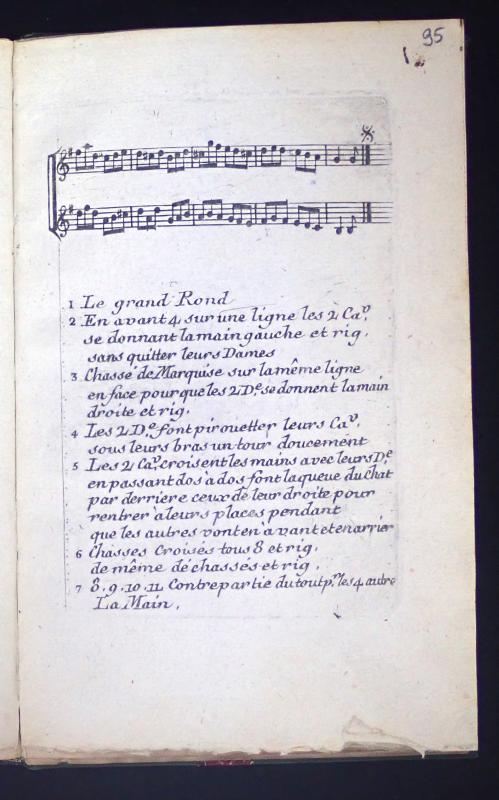 95
1 Le grand Rond
2 En avant 4 sur une ligne les 2 Cav.
se donnant la main gauche et rig.
sans quitter leurs Dames
3 Chassé de Marquise sur la même ligne
en face pour que les 2 De. se donnent la main
droite et rig.
4 Les 2 De. font pirouetter leurs Cav.
sous leurs bras un tour doucement
5 Les 2 Cav. croisent les mains avec leurs De.
en passant dos à dos font la queue du chat
par derriere ceux de leur droite pour
rentrer à leurs places pendant
que les autres vont en avant et en arrier
6 Chassés Croisés tous 8 et rig.
de même déchassés et rig.
7 8. 9. 10. 11. Contrepartie du tout pr. les 4 autre
La Main.